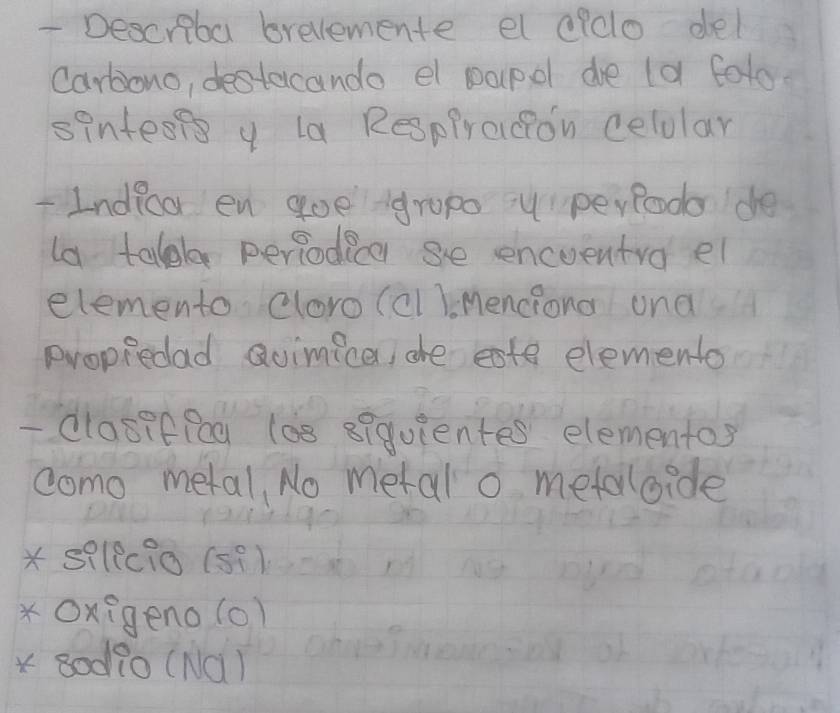 - Describa brevemente el ciclo del
Carbono, destacando el papel de la foto-
síntesis y la Respiración celular
- Indica en que grupo y periodo de
la tabla periodica se encuentra el
elemento cloro (cl). Menciona una
propiedad Quimica, de este elemento
- Clasifica los siguientes elementos
como metal, No metal o metaloide
* silicio (si)
* Oxigeno (o)
* sodio (Na)